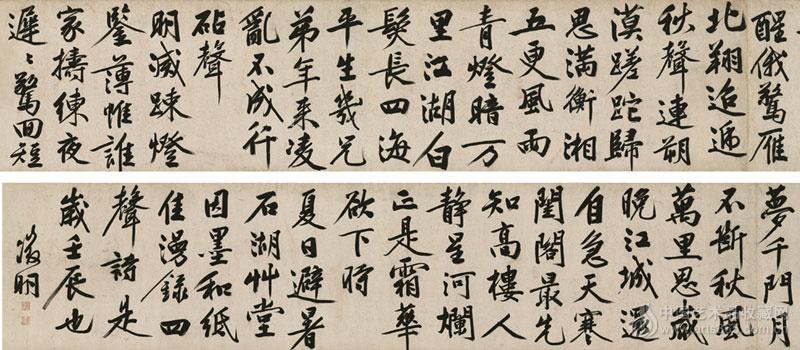 醒俄驚雁
北翔迢遞
秋聲連朔
漠蹉跎歸
思滿衡湘
五更風雨
青燈暗万
里江湖白
髮長四海
平生幾兄
弟年來凌
亂不成行
砧聲
明滅踈燈
鑒薄帷誰
家擣練夜
遲〻驚回短
夢千門月
不斷秋風
萬里思歲
晚江城還
自急天寒
閨閣最先
知高樓人
靜星河爛
正是霜華
欲下時
夏日避暑
石湖艸堂
因墨和紙
佳漫錄四
聲詩是
歲壬辰也
徵明
中国艺术品收藏网